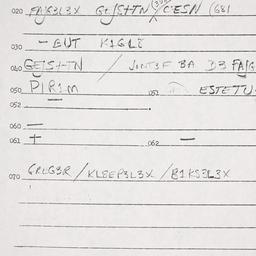 020 FAIG3L3X GEJSHTN / CESN (681
030 - EUT KIGLE
040 GEISHTN / JONT3F BA D3 FAIG
050 PIRIM 051 ESTETU
052 -
060 -
061 + 062 -
070 GRLG3R / KLEEP3L3X / BIKS3L3X